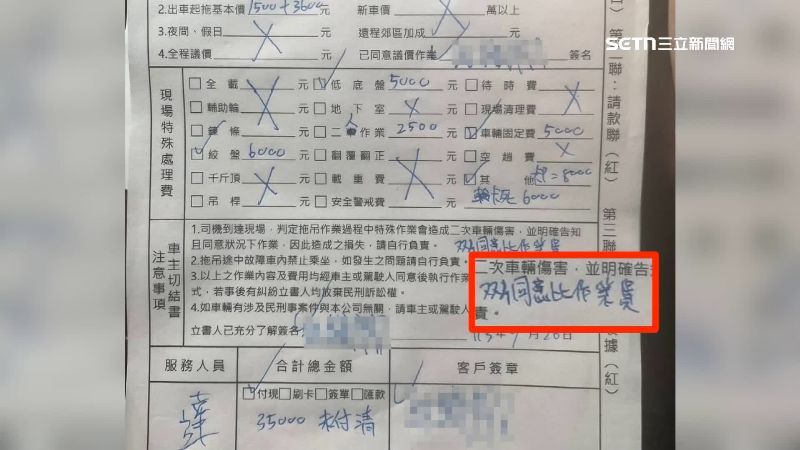 2.出車起拖基本價 1500+3600 元 新車價 萬以上
3.夜間、假日 X 元 遠程郊區加成 元
4.全程議價 元 已同意議價作業 簽名
SETN三立新聞網
第二聯：請款聯（紅）
第三聯
據（紅）
現場特殊處理費
全載 元 低底盤 5000 元 待時費 元
輔助輪 X 元 地下室 X 元 現場清理費 X 元
鏈條 元 二人作業 2500 元 車輛固定費 5000 元
絞盤 6000 元 翻覆翻正 元 空趟費 X 元
千斤頂 X 元 載重費 X 元 其他 =8000
吊桿 元 安全警戒費 元 6000
車主切結書
注意事項
1.司機到達現場，判定拖吊作業過程中特殊作業會造成二次車輛傷害，並明確告知
且同意狀況下作業，因此造成之損失，請自行負責。
2.拖吊途中故障車內禁止乘坐，如發生之問題請自行負責。
3.以上之作業內容及費用均經車主或駕駛人同意後執行作業
式，若事後有糾紛立書人均放棄民刑訴訟權。
4.如車輛有涉及民刑事案件與本公司無關，請車主或駕駛人
立書人已充分了解簽名 月26日
二次車輛傷害，並明確告知
同意此作業
責。
服務人員 合計總金額 客戶簽章
付現 刷卡 簽單 匯款
35000 未付清